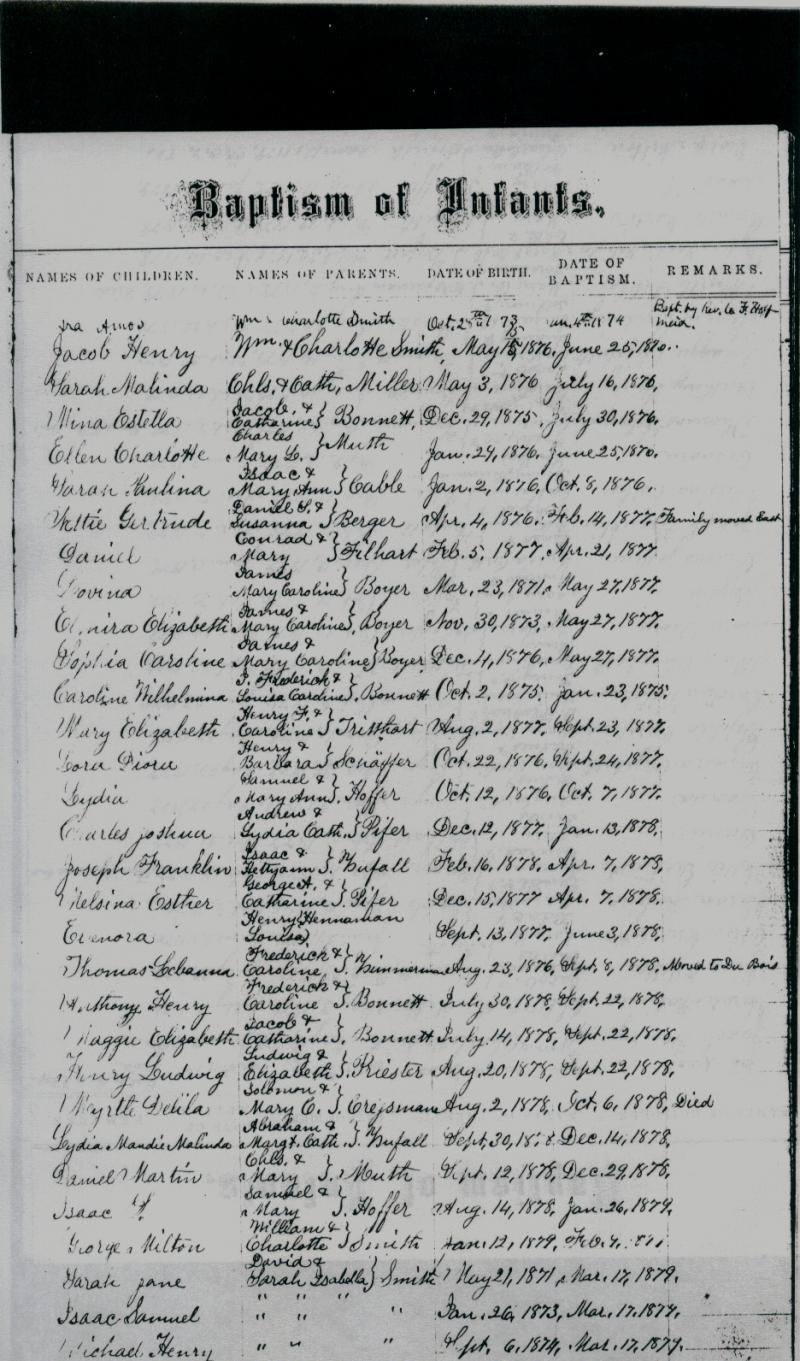 Baptism of Infants.
NAMES OF CHILDREN. NAMES OF PARENTS. DATE OF BIRTH. DATE OF BAPTISM. REMARKS.
Ira Amos Wm & Charlotte Smith Oct. 73 1874 Bapt. by Rev.
Jacob Henry Wm. & Charlotte Smith, May 15, 1876. June 25, 1876.
Sarah Malinda Chls. & Cath, Miller May 3, 1876 July 16, 1876,
Mina Estella Jacob, & Catharine } Bonnett, Dec. 29, 1875. July 30, 1876.
Ellen Charlotte Charles Mary L. } Muth Jan. 29, 1876. June 25, 1876.
Sarah Paulina Isaac & Mary Ann } Cable Jan. 2, 1876, Oct. 8, 1876.
Gertrude Daniel S. & Susanna } Berger Apr. 4, 1876. Feb. 14, 1877. Family moved East
Daniel Conrad & Mary } Filhart Feb. 5, 1877. Apr. 21, 1877.
Lovina James Mary Caroline } Boyer Mar. 23, 1871, May 27, 1877,
Elmira Elizabeth James & Mary Caroline }, Boyer Nov. 30, 1873, May 27, 1877.
Sophia Caroline James & Mary Caroline } Boyer Dec. 4, 1876, May 27, 1877.
Caroline Wilhelmina J. Frederick & Louisa Caroline }, Bonnett Oct. 2, 1875. Jan. 23, 1875.
Mary Elizabeth Henry F. & Caroline } Aug. 2, 1877. Sept. 23, 1877.
Henry & Barbara } Schäffer Oct. 22, 1876, Sept. 24, 1877.
Lydia Samuel & Mary Ann } Hoffer Oct. 12, 1876, Oct. 7, 1877.
Charles Joshua Andrew & Lydia Cath. } Pifer Dec. 12, 1877, Jan. 13, 1878.
Joseph Franklin Isaac & Hettyann } Zufall Feb. 16, 1878, Apr. 7, 1878,
Melsina Esther George A. & Catharine } Pifer Dec. 15, 1877 Apr. 7, 1878.
Elenora Henry Louisa } Hennaman Sept. 13, 1877, June 3, 1878,
Thomas Frederick & Caroline, } Zimmerman Aug. 23, 1876, Sept. 8, 1878, Moved to Du Bois
Anthony Henry Frederick & Caroline } Bonnett July 30, 1878, Sept. 22, 1878,
Maggie Elizabeth Jacob & Catharine } Bonnett July 14, 1878, Sept. 22, 1878,
Henry Ludwig Ludwig & Elizabeth } Kriester Aug. 20, 1878, Sept. 22, 1878,
Myrtle Delila Solomon & Mary C. } Cregsman Aug. 2, 1878, Oct. 6, 1878, Died
Lydia Maudie Malinda Abraham & Margt. Cath. } Zufall Sept. 30, Dec. 14, 1878,
Daniel Martin Chls. & Mary } Muth Sept. 12, 1878, Dec. 29, 1878,
Isaac Samuel & Mary } Hoffer Aug. 14, 1878, Jan. 26, 1879,
George Milton William & Charlotte } Smith Jan. 12, 1879, Feb.
Sarah Jane David & Sarah Isabella } Smith May 21, 1871, Mar. 17, 1879.
Isaac Samuel " " " " Jan. 26, 1873, Mar. 17, 1879.
Michael Henry " " " Sept. 6, 1874, Mar. 17, 1879.